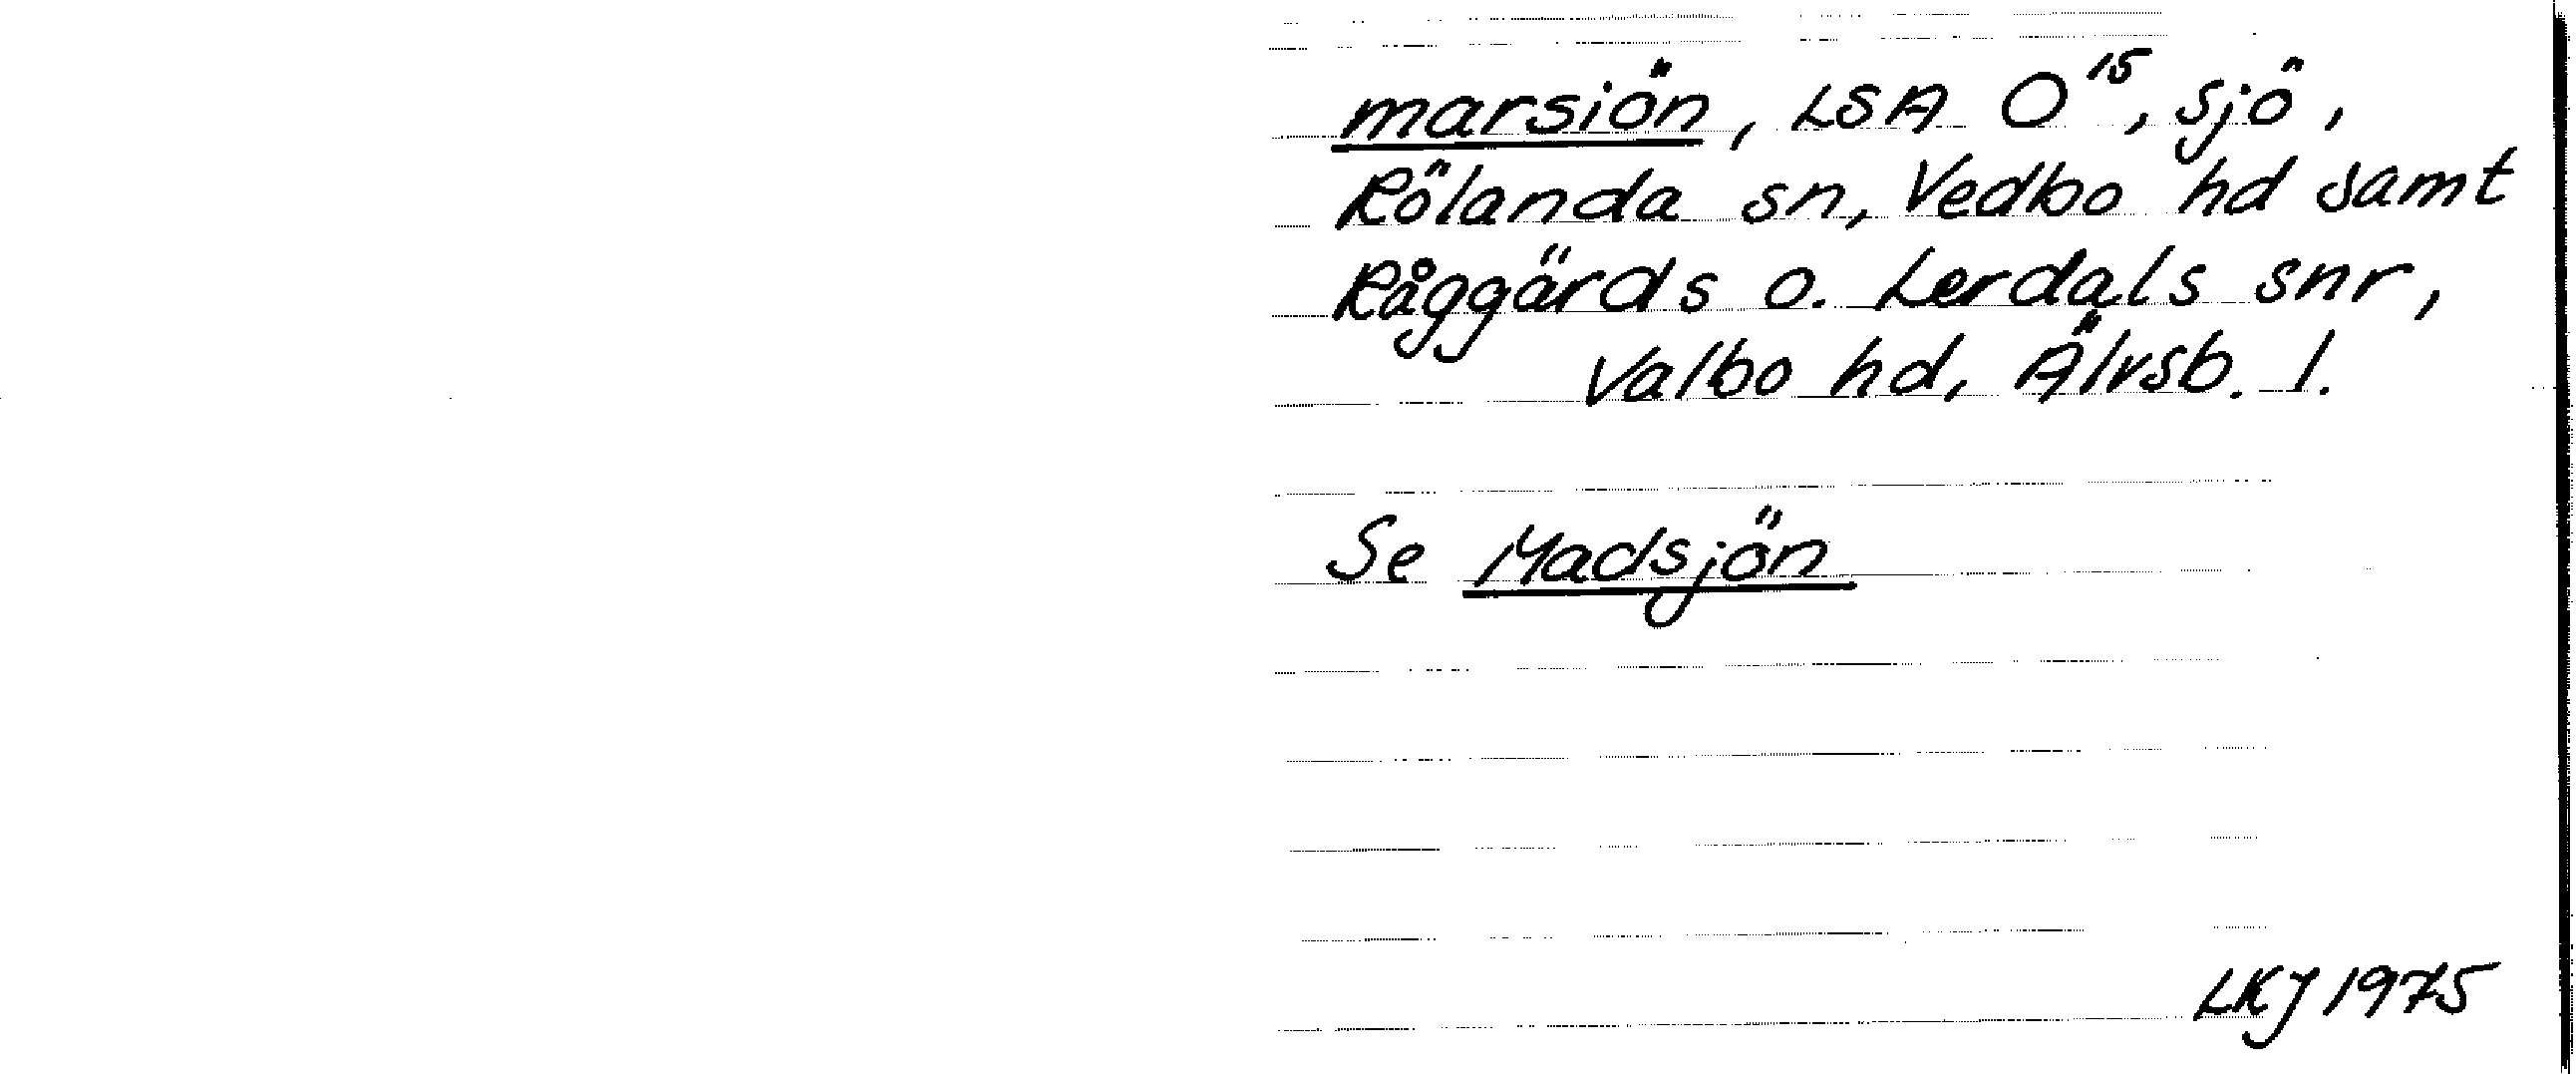 marsiön, LSA O¹⁵, sjö,
Rölanda sn, Vedbo hd samt
Råggärds o. Lerdals snr,
Valbo hd, Älvsb. l.
Se Madsjön
LKJ 1975